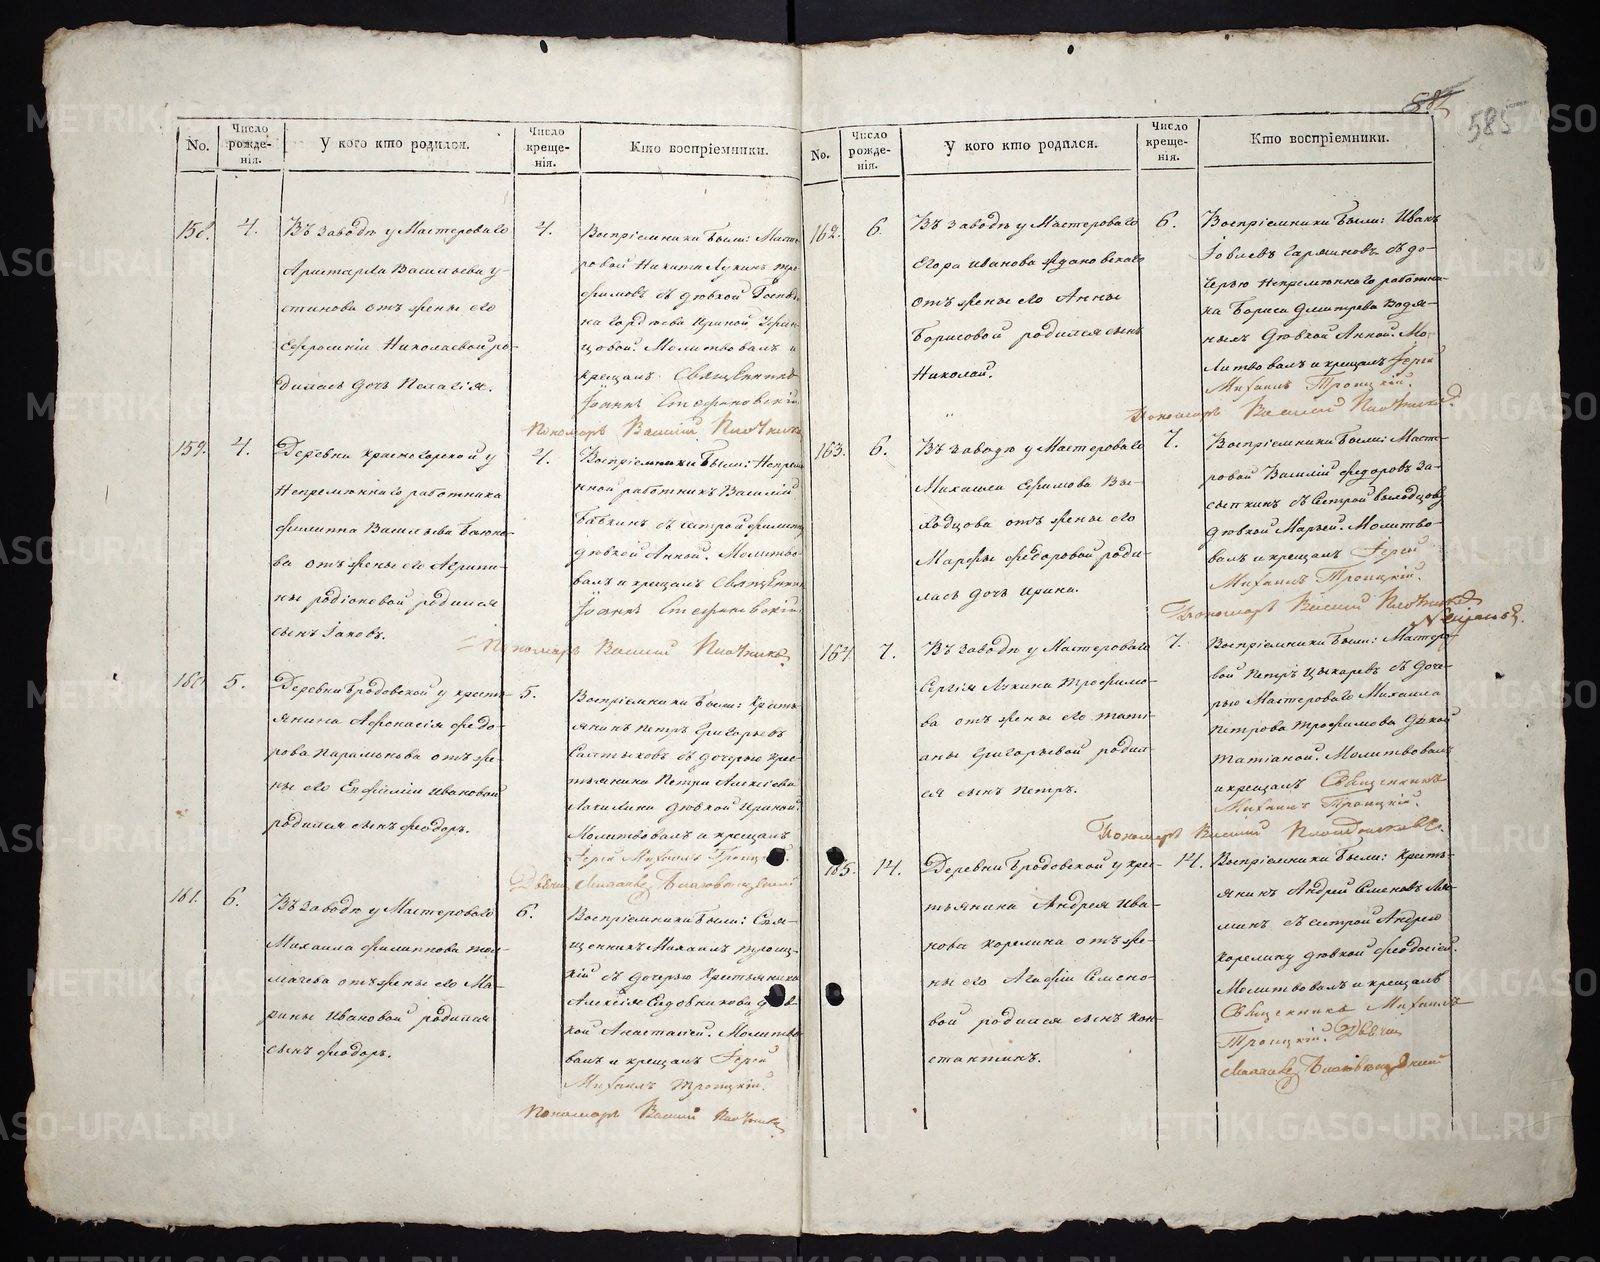 585
No.
Число рожде-нія.
У кого кто родился.
Число креще-нія.
Кто воспріемники.
158.
4.
Въ заводѣ у Мастероваго
Аристарха Васильева У-
стинова отъ жены его
Евфросиніи Николаевой ро-
дилась дочь Пелагія.
4.
Воспріемники были: Масте-
ровой Никита Лукинъ Тро-
фимовъ съ дѣвкой
на Гордѣева Ириной
цовой. Молитвовалъ и
крещалъ Священникъ
Іоаннъ Стефановскій
Пономарь Василій Плотниковъ
159.
4.
Деревни Красногорской у
Непремѣннаго работника
Филиппа Васильева
ва отъ жены его Агрипи-
ны Родіоновой родился
сынъ Іаковъ.
4.
Воспріемники были: Непремѣ-
нной работникъ Василій
Бабкинъ съ сестрой Филиппа
дѣвкой Анной. Молитво-
валъ и крещалъ Священникъ
Іоаннъ Стефановскій
Пономарь Василій Плотниковъ
160.
5.
Деревни Бродовской у кресть-
янина Афонасія Федо-
рова Парамонова отъ же-
ны его Евфиміи Ивановой
родился сынъ Феодоръ.
5.
Воспріемники были: Кресть-
янинъ Петръ Григорьевъ
Салтыковъ съ дочерью Крес-
тьянина Петра Алексѣева
дѣвкой Ириной.
Молитвовалъ и крещалъ
Іерей Михаилъ Троицкій.
161.
6.
Въ заводѣ у Мастероваго
Михаила Филиппова Тол-
мачева отъ жены его Ма-
рины Ивановой родился
сынъ Феодоръ.
6.
Воспріемники были: Свя-
щенникъ Михаилъ Троиц-
кій съ дочерью Крестьянина
Алексія Садовникова дѣв-
кой Анастасіей. Молитво-
валъ и крещалъ Іерей
Михаилъ Троицкій.
Пономарь Василій Плотниковъ
No.
Число рожде-нія.
У кого кто родился.
Число креще-нія.
Кто воспріемники.
162.
6.
Въ заводѣ у Мастероваго
Егора Иванова Ждановскаго
отъ жены его Анны
Борисовой родился сынъ
Николай.
6.
Воспріемники были: Иванъ
Іовлевъ съ до-
черью Непремѣннаго работни-
ка Бориса Дмитрева Водя-
ныхъ дѣвкой Анной. Мо-
литвовалъ и крещалъ Іерей
Михаилъ Троицкій.
Пономарь Василій Плотниковъ
163.
6.
Въ заводѣ у Мастероваго
Михаила Ефимова Вы-
ходцова отъ жены его
Марфы Федоровой роди-
лась дочь Ирина.
7.
Воспріемники были: Масте-
ровой Василій Федоровъ За-
сыпкинъ съ сестрой Выходцова
дѣвкой Марьей. Молитво-
валъ и крещалъ Іерей
Михаилъ Троицкій.
Пономарь Василій Плотниковъ
164.
7.
Въ заводѣ у Мастероваго
Сергія Лукина Трофимо-
ва отъ жены его Тати-
аны Григорьевой родил-
ся сынъ Петръ.
7.
Воспріемники были: Мастеро-
вой Петръ Цыкаревъ съ доче-
рью Мастероваго Михаила
Петрова Трофимова дѣвкой
Татіаной. Молитвовалъ
и крещалъ Священникъ
Михаилъ Троицкій.
Пономарь Василій Плотниковъ
165.
14.
Деревни Бродовской у крес-
тьянина Андрея Ива-
нова Корелина отъ же-
ны его Агафіи Семено-
вой родился сынъ Кон-
стантинъ.
14.
Воспріемники были: Кресть-
янинъ Андрей Семеновъ
съ сестрой Андрея
Корелину дѣвкой Феодосіей.
Молитвовалъ и крещалъ
Священникъ Михаилъ
Троицкій.
METRIKI.GASO-URAL.RU